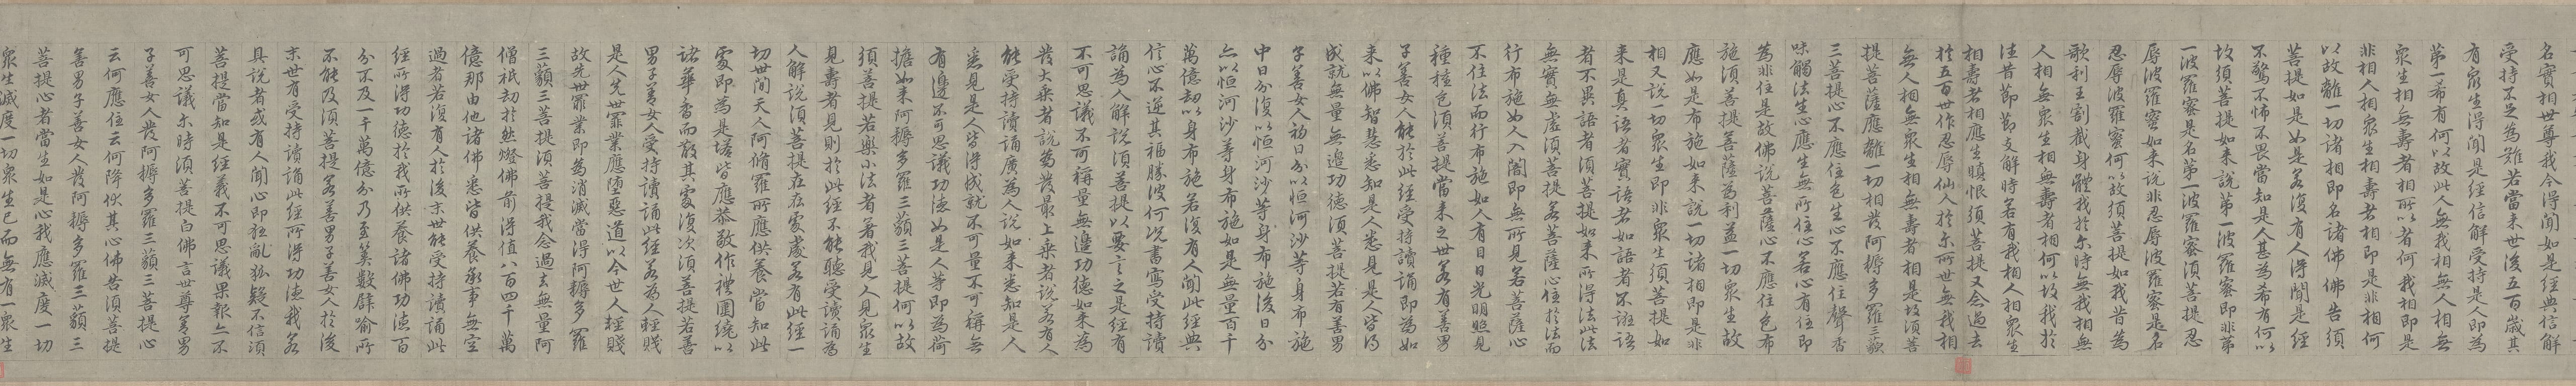 名實相世尊我今得聞如是經典信解
受持不足為難若當來世後五百歲其
有衆生得聞是經信解受持是人即為
第一希有何以故此人無我相無人相無
衆生相無壽者相所以者何我相即是
非相人相衆生相壽者相即是非相何
以故離一切諸相即名諸佛佛告須
菩提如是如是若復有人得聞是經
不驚不怖不畏當知是人甚為希有何以
故須菩提如來說第一波羅蜜即非第
一波羅蜜是名第一波羅蜜須菩提忍
辱波羅蜜如來說非忍辱波羅蜜是名
忍辱波羅蜜何以故須菩提如我昔為
歌利王割截身體我於尒時無我相無
人相無衆生相無壽者相何以故我於
往昔節節支解時若有我相人相衆生
相壽者相應生瞋恨須菩提又念過去
於五百世作忍辱仙人於尒所世無我相
無人相無衆生相無壽者相是故須菩
提菩薩應離一切相發阿耨多羅三藐
三菩提心不應住色生心不應住聲香
味觸法生心應生無所住心若心有住即
為非住是故佛說菩薩心不應住色布
施須菩提菩薩為利益一切衆生故
應如是布施如來說一切諸相即是非
相又說一切衆生即非衆生須菩提如
來是真語者實語者如語者不誑語
者不異語者須菩提如來所得法此法
無實無虛須菩提若菩薩心住於法而
行布施如人入闇即無所見若菩薩心
不住法而行布施如人有目日光明照見
種種色須菩提當來之世若有善男
子善女人能於此經受持讀誦即為如
來以佛智慧悉知是人悉見是人皆得
成就無量無邊功德須菩提若有善男
子善女人初日分以恒河沙等身布施
中日分復以恒河沙等身布施後日分
亦以恒河沙等身布施如是無量百千
萬億劫以身布施若復有人聞此經典
信心不逆其福勝彼何況書寫受持讀
誦為人解說須菩提以要言之是經有
不可思議不可稱量無邊功德如來為
發大乘者說為發最上乘者說若有人
能受持讀誦廣為人說如來悉知是人
悉見是人皆得成就不可量不可稱無
有邊不可思議功德如是人等即為荷
擔如來阿耨多羅三藐三菩提何以故
須菩提若樂小法者著我見人見衆生
見壽者見則於此經不能聽受讀誦為
人解說須菩提在在處處若有此經一
切世間天人阿脩羅所應供養當知此
處即為是塔皆應恭敬作禮圍繞以
諸華香而散其處復次須菩提若善
男子善女人受持讀誦此經若為人輕賤
是人先世罪業應墮惡道以今世人輕賤
故先世罪業即為消滅當得阿耨多羅
三藐三菩提須菩提我念過去無量阿
僧祇劫於然燈佛前得值八百四千萬
億那由他諸佛悉皆供養承事無空
過者若復有人於後末世能受持讀誦此
經所得功德於我所供養諸佛功德百
分不及一千萬億分乃至算數譬喻所
不能及須菩提若善男子善女人於後
末世有受持讀誦此經所得功德我若
具說者或有人聞心即狂亂狐疑不信須
菩提當知是經義不可思議果報亦不
可思議尒時須菩提白佛言世尊善男
子善女人發阿耨多羅三藐三菩提心
云何應住云何降伏其心佛告須菩提
善男子善女人發阿耨多羅三藐三
菩提心者當生如是心我應滅度一切
衆生滅度一切衆生已而無有一衆生